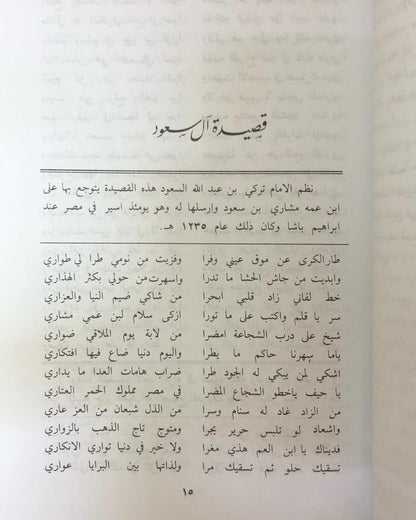 قصيدة آل سعود
نظم الامام تركي بن عبد الله السعود هذه القصيدة يتوجع بها على
ابن عمه مشاري بن سعود وإرسلها له وهو يومئذ اسير في مصر عند
ابراهيم باشا وكان ذلك عام ١٢٣٥ هـ.
طار الكرى عن موق عيني وفرا وفزيت من نومي طرا لي طواري
وابديت من جاش الحشا ما تدرا واسهرت من حولي بكثر الهذاري
خط لفاني زاد قلبي ابحرا من شاكي ضيم النيا والعزاري
سر يا قلم واكتب على ما تورا ازكى سلام لبن عمي مشاري
شيخ على درب الشجاعة امضرا من لابة يوم الملاقي ضواري
ياما سهرنا حاكم ما يطرا واليوم دنيا ضاع فيها افتكاري
اشكي لمن يبكي له الجود طرا ضراب هامات العدا ما يداري
يا حيف ياخطو الشجاع المضرا في مصر مملوك الحمر العتاري
من الزاد غاد له سنام وسرا من الذل شبعان من العز عاري
واشعاد لو تلبس حرير يجرا ومتوج تاج الذهب بالزواري
فديناك يا ابن العم هذي مغرا ولا خير في دنيا تواري الانكاري
تسقيك حلو ثم تسقيك مرا ولذاتها بين البرايا عواري
١٥